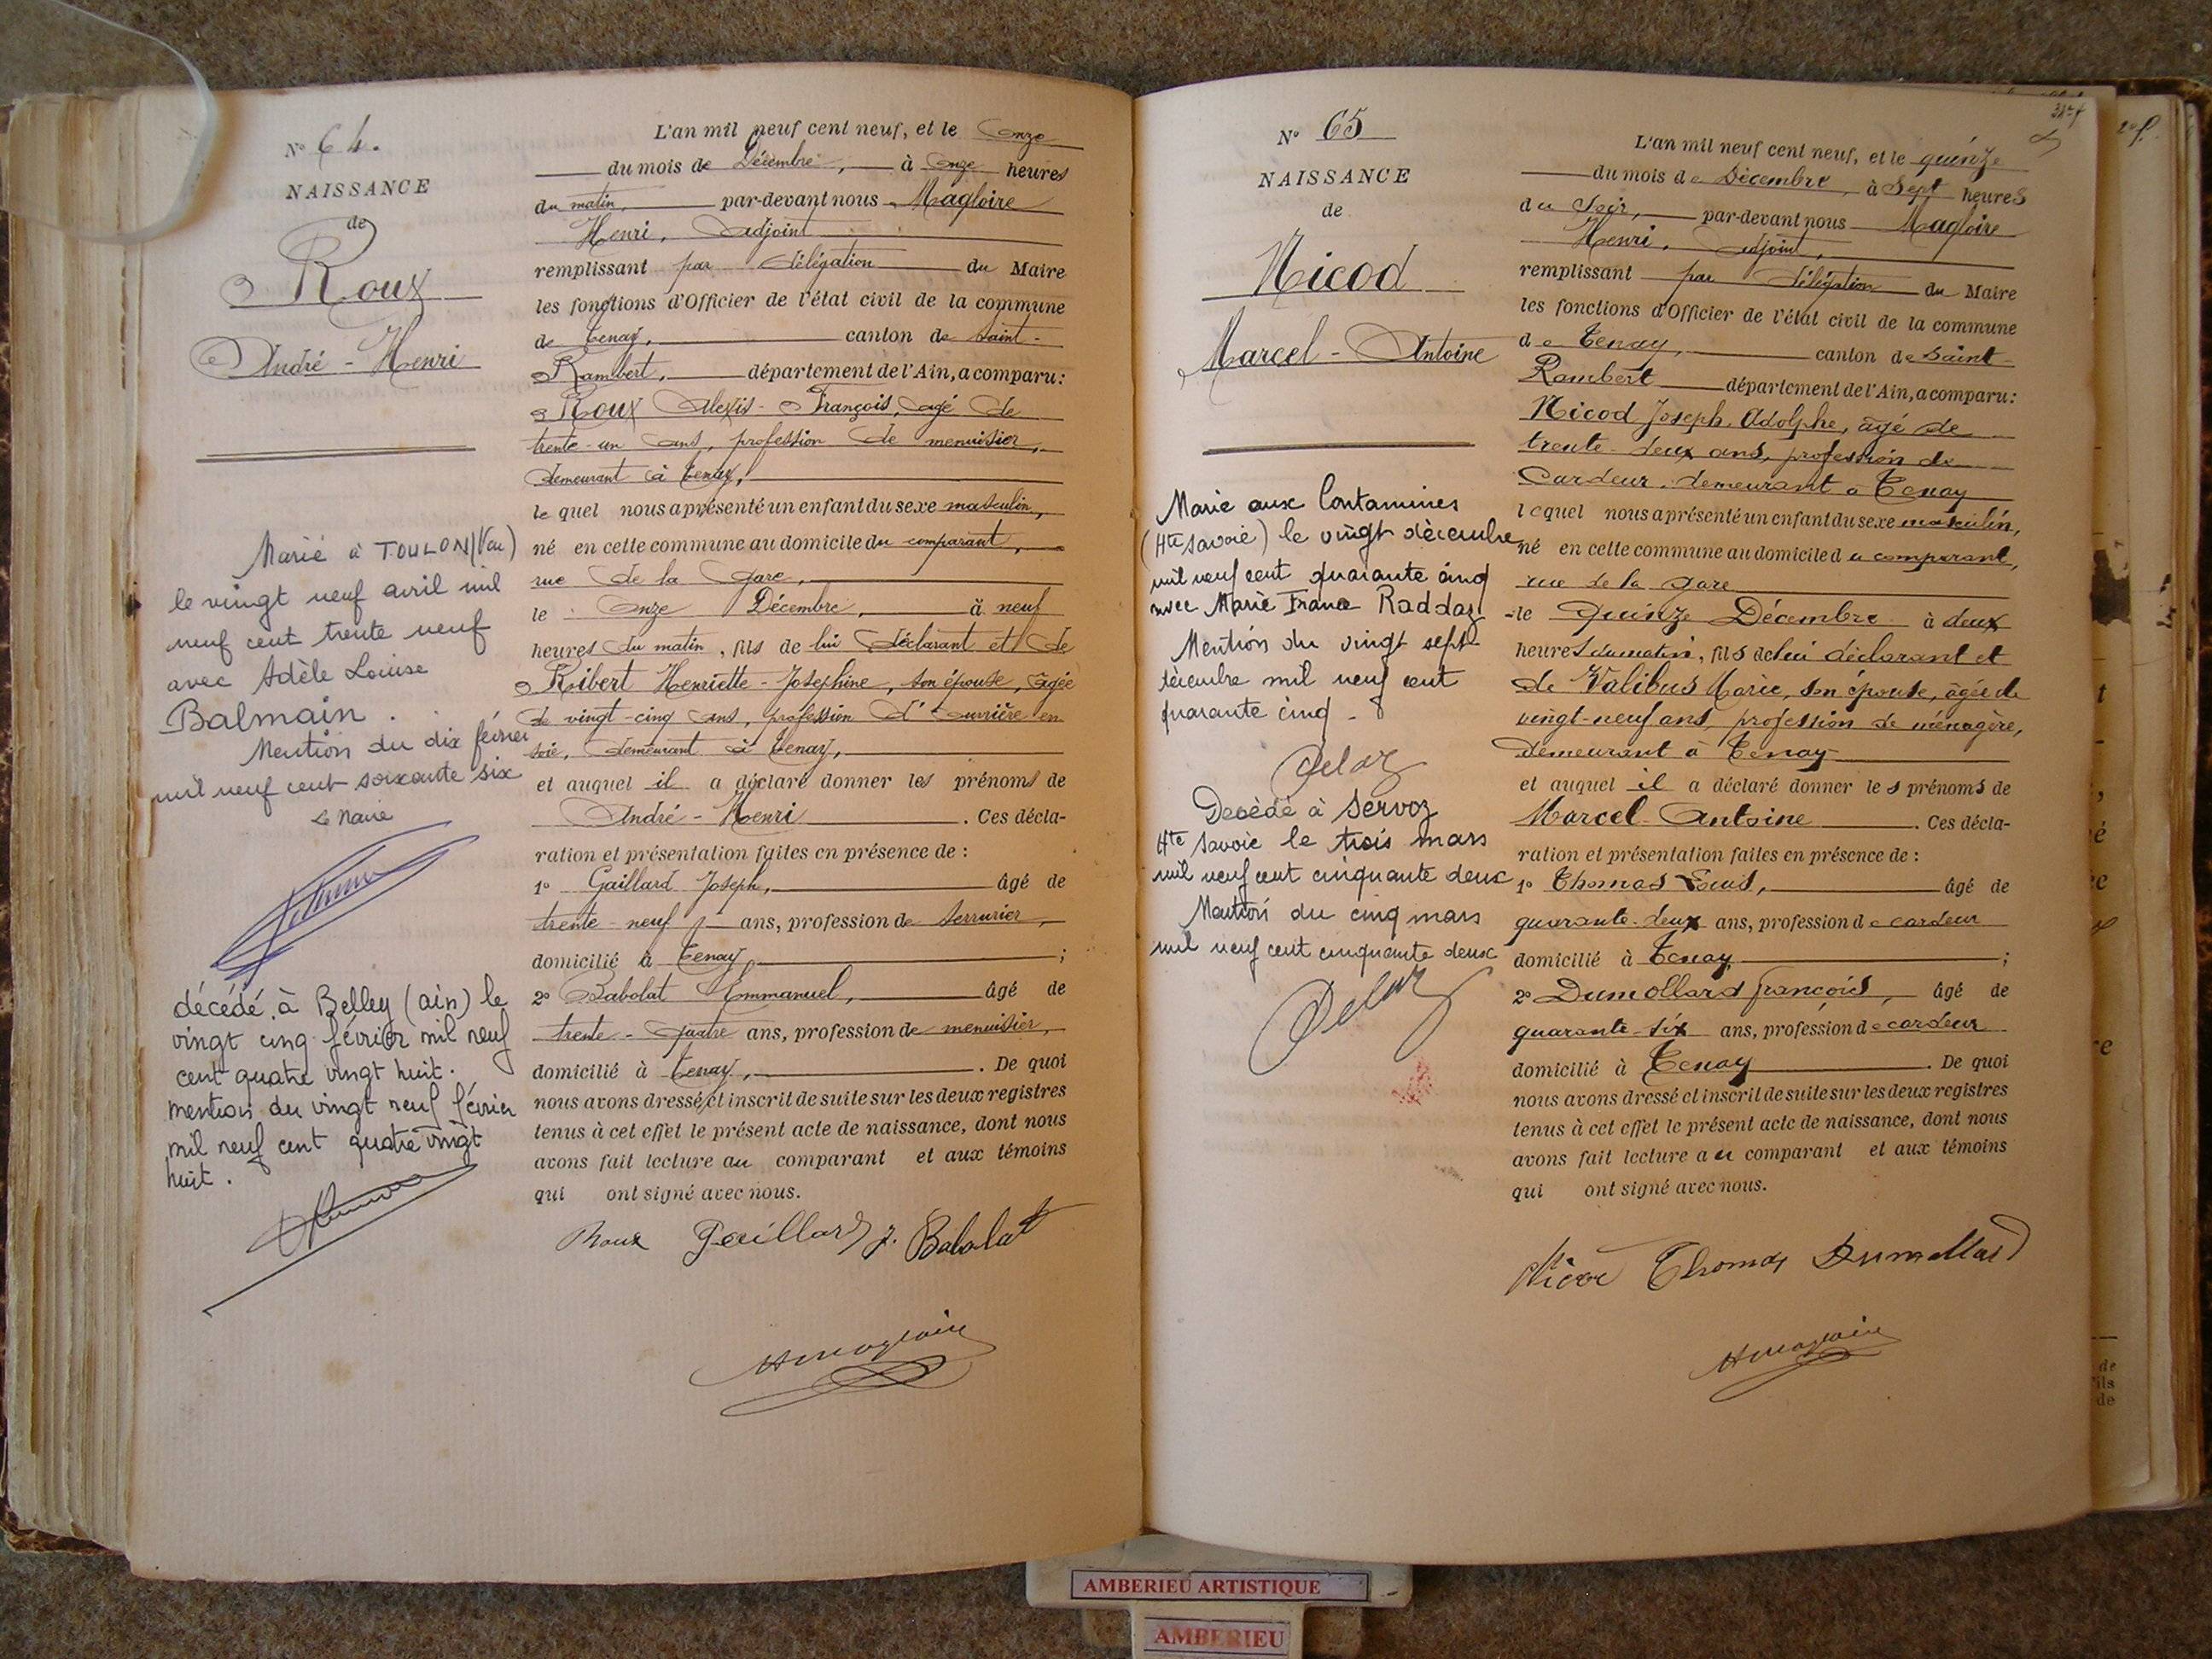 N° 64.
NAISSANCE
de
Roux
André - Henri
Marié à TOULON (Var)
le vingt neuf avril mil
neuf cent trente neuf
avec Adèle Louise
Balmain.
Mention du dix février
mil neuf cent soixante six
Le Maire
décédé à Belley (ain) le
vingt cinq février mil neuf
cent quatre vingt huit.
mention du vingt neuf février
mil neuf cent quatre vingt
huit.
L'an mil neuf cent neuf, et le onze
du mois de Décembre, à onze heures
du matin, par-devant nous Magloire
Henri, Adjoint
remplissant par délégation du Maire
les fonctions d'Officier de l'état civil de la commune
de Tenay, canton de Saint-
Rambert, département de l'Ain, a comparu:
Roux Alexis-François, âgé de
trente-un ans, profession de menuisier,
demeurant à Tenay,
le quel nous a présenté un enfant du sexe masculin,
né en cette commune au domicile du comparant,
rue de la Gare,
le onze Décembre, à neuf
heures du matin, fils de lui déclarant et de
Ribert Henriette-Josephine, son épouse, âgée
de vingt-cinq ans, profession d'ouvrière en
soie, demeurant à Tenay,
et auquel il a déclaré donner les prénoms de
André-Henri. Ces décla-
ration et présentation faites en présence de :
1° Gaillard Joseph, âgé de
trente-neuf ans, profession de serrurier,
domicilié à Tenay ;
2° Babolat Emmanuel, âgé de
trente-quatre ans, profession de menuisier,
domicilié à Tenay,. De quoi
nous avons dressé et inscrit de suite sur les deux registres
tenus à cet effet le présent acte de naissance, dont nous
avons fait lecture au comparant et aux témoins
qui ont signé avec nous.
Roux Gaillard J. Babolat
H Magloire
N° 65
NAISSANCE
de
Nicod
Marcel - Antoine
Marié aux Contamines
(Hte Savoie) le vingt décembre
mil neuf cent quarante cinq
avec Marie France Raddaz
Mention du vingt sept
décembre mil neuf cent
quarante cinq -
Delaz
Décédé à Servoz
Hte Savoie le trois mars
mil neuf cent cinquante deux
Mention du cinq mars
mil neuf cent cinquante deux
Delaz
L'an mil neuf cent neuf, et le quinze
du mois de Décembre, à Sept heures
du Soir, par-devant nous Magloire
Henri, adjoint,
remplissant par délégation du Maire
les fonctions d'Officier de l'état civil de la commune
de Tenay, canton de Saint-
Rambert département de l'Ain, a comparu:
Nicod Joseph Adolphe, âgé de
trente-deux ans, profession de
Cardeur, demeurant à Tenay
lequel nous a présenté un enfant du sexe masculin,
né en cette commune au domicile du comparant,
rue de la gare
le Quinze Décembre à deux
heures du matin, fils de lui déclarant et
de Valibus Marie, son épouse, âgée de
vingt-neuf ans, profession de ménagère,
demeurant à Tenay
et auquel il a déclaré donner les prénoms de
Marcel-Antoine. Ces décla-
ration et présentation faites en présence de :
1° Thomas Louis, âgé de
quarante-deux ans, profession de cardeur
domicilié à Tenay ;
2° Dumollard François, âgé de
quarante-six ans, profession de cardeur
domicilié à Tenay. De quoi
nous avons dressé et inscrit de suite sur les deux registres
tenus à cet effet le présent acte de naissance, dont nous
avons fait lecture au comparant et aux témoins
qui ont signé avec nous.
Nicod Thomas Dumollard
H Magloire
AMBERIEU ARTISTIQUE
AMBERIEU